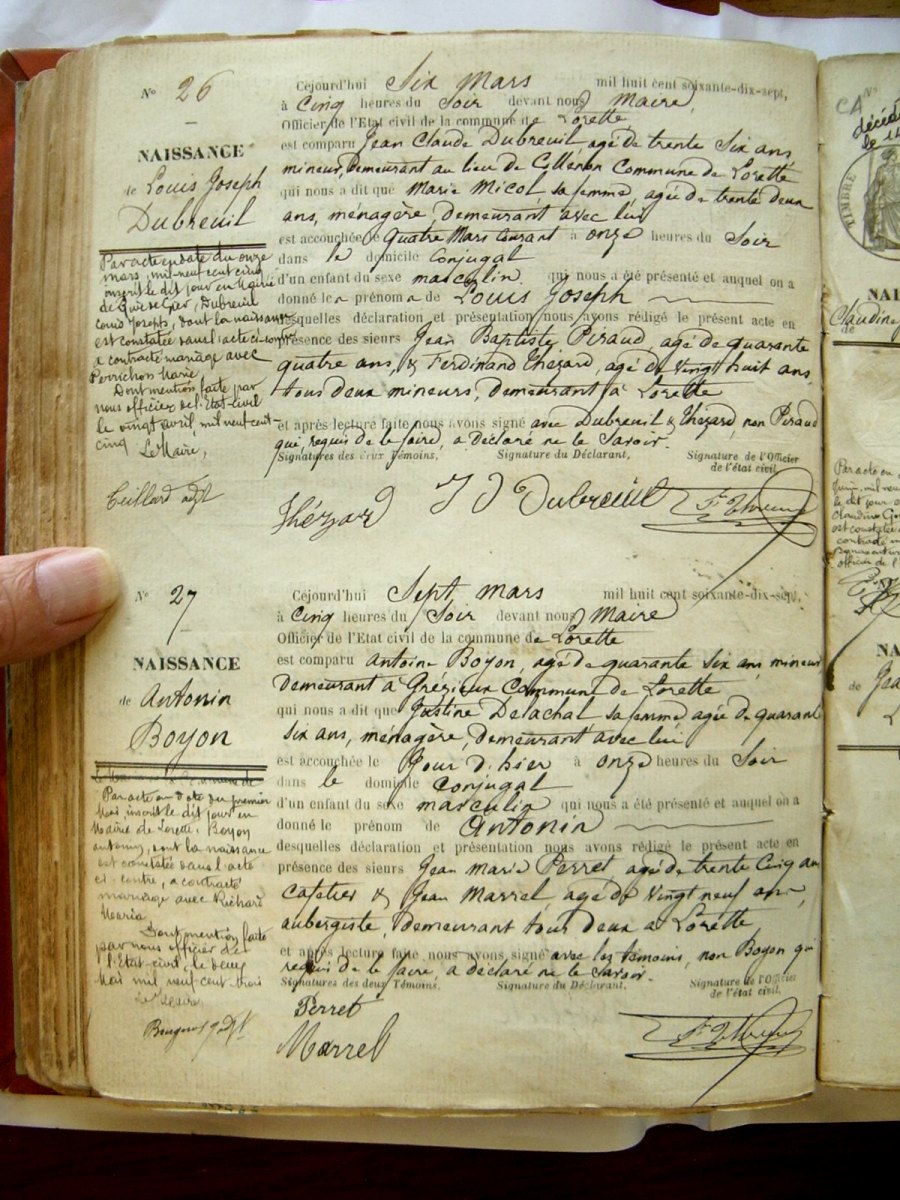 N° 26
NAISSANCE
de Louis Joseph
Dubreuil
Par acte en date du onze
mars, mil neuf cent cinq
inscrit le dit jour en Mairie
de Dubreuil
Louis Joseph, dont la naissance
est constatée dans l'acte ci-contre
a contracté mariage avec
Perrichon Marie,
Dont mention faite par
nous officier de l'Etat-Civil
le vingt avril mil neuf cent
cinq
Le Maire,
Teillard adjt
Cejourd'hui Six Mars mil huit cent soixante-dix-sept,
à Cinq heures du Soir devant nous Maire
Officier de l'Etat civil de la commune de Lorette
est comparu Jean Claude Dubreuil, agé de trente Six ans
mineur, Demeurant au lieu de Commune de Lorette
qui nous a dit que Marie Micol, sa femme, agée de trente deux
ans, ménagère, demeurant avec lui
est accouchée le Quatre Mars Courant à onze heures du Soir
dans le domicile Conjugal
d'un enfant du sexe masculin qui nous a été présenté et auquel on a
donné le s prénom s de Louis Joseph
desquelles déclaration et présentation nous avons rédigé le présent acte en
présence des sieurs Jean Baptiste Piraud, agé de quarante
quatre ans, & Ferdinand Thézard, agé de Vingt huit ans,
tous deux mineurs, Demeurant à Lorette
et après lecture faite nous avons signé avec Dubreuil & Thézard, non Piraud
qui requis de le faire, a déclaré ne le Savoir.
Signatures des deux Témoins, Signature du Déclarant, Signature de l'Officier
de l'état civil,
Thézard J D Dubreuil
N° 27
NAISSANCE
de Antonin
Boyon
Par acte en date du premier
Mai, inscrit le dit jour en
Mairie de Lorette, Boyon
Antonin, dont la naissance
est constatée dans l'acte
ci-contre, a contracté
mariage avec Richard
Maria
Dont mention faite
par nous officier de
l'Etat-civil, le deux
Mai mil neuf cent trois
Le Maire
Cejourd'hui Sept mars mil huit cent soixante-dix-sept,
à Cinq heures du Soir devant nous Maire
Officier de l'Etat civil de la commune de Lorette
est comparu Antoine Boyon, agé de quarante Six ans mineur
Demeurant à Grézieux Commune de Lorette
qui nous a dit que Justine Delachal sa femme agée de quarante
six ans, ménagère, demeurant avec lui
est accouchée le Jour d'hier à onze heures du Soir
dans le domicile Conjugal
d'un enfant du sexe masculin qui nous a été présenté et auquel on a
donné le prénom de Antonin
desquelles déclaration et présentation nous avons rédigé le présent acte en
présence des sieurs Jean Marie Perret, agé de trente Cinq ans
Cafetier & Jean Marrel agé de Vingt neuf ans,
aubergiste, Demeurant tous deux à Lorette
et après lecture faite, nous avons signé avec les témoins, non Boyon qui
requis de le faire, a déclaré ne le Savoir.
Signatures des deux Témoins, Signature du Déclarant, Signature de l'Officier
de l'état civil,
Perret
Marrel
N°
décédé
le
TIMBRE
NAI
Claudine
de
Par acte en
Juin, mil neuf
le dit jour
Claudine
est constatée
contracté
officier de l'
NA
de Jea